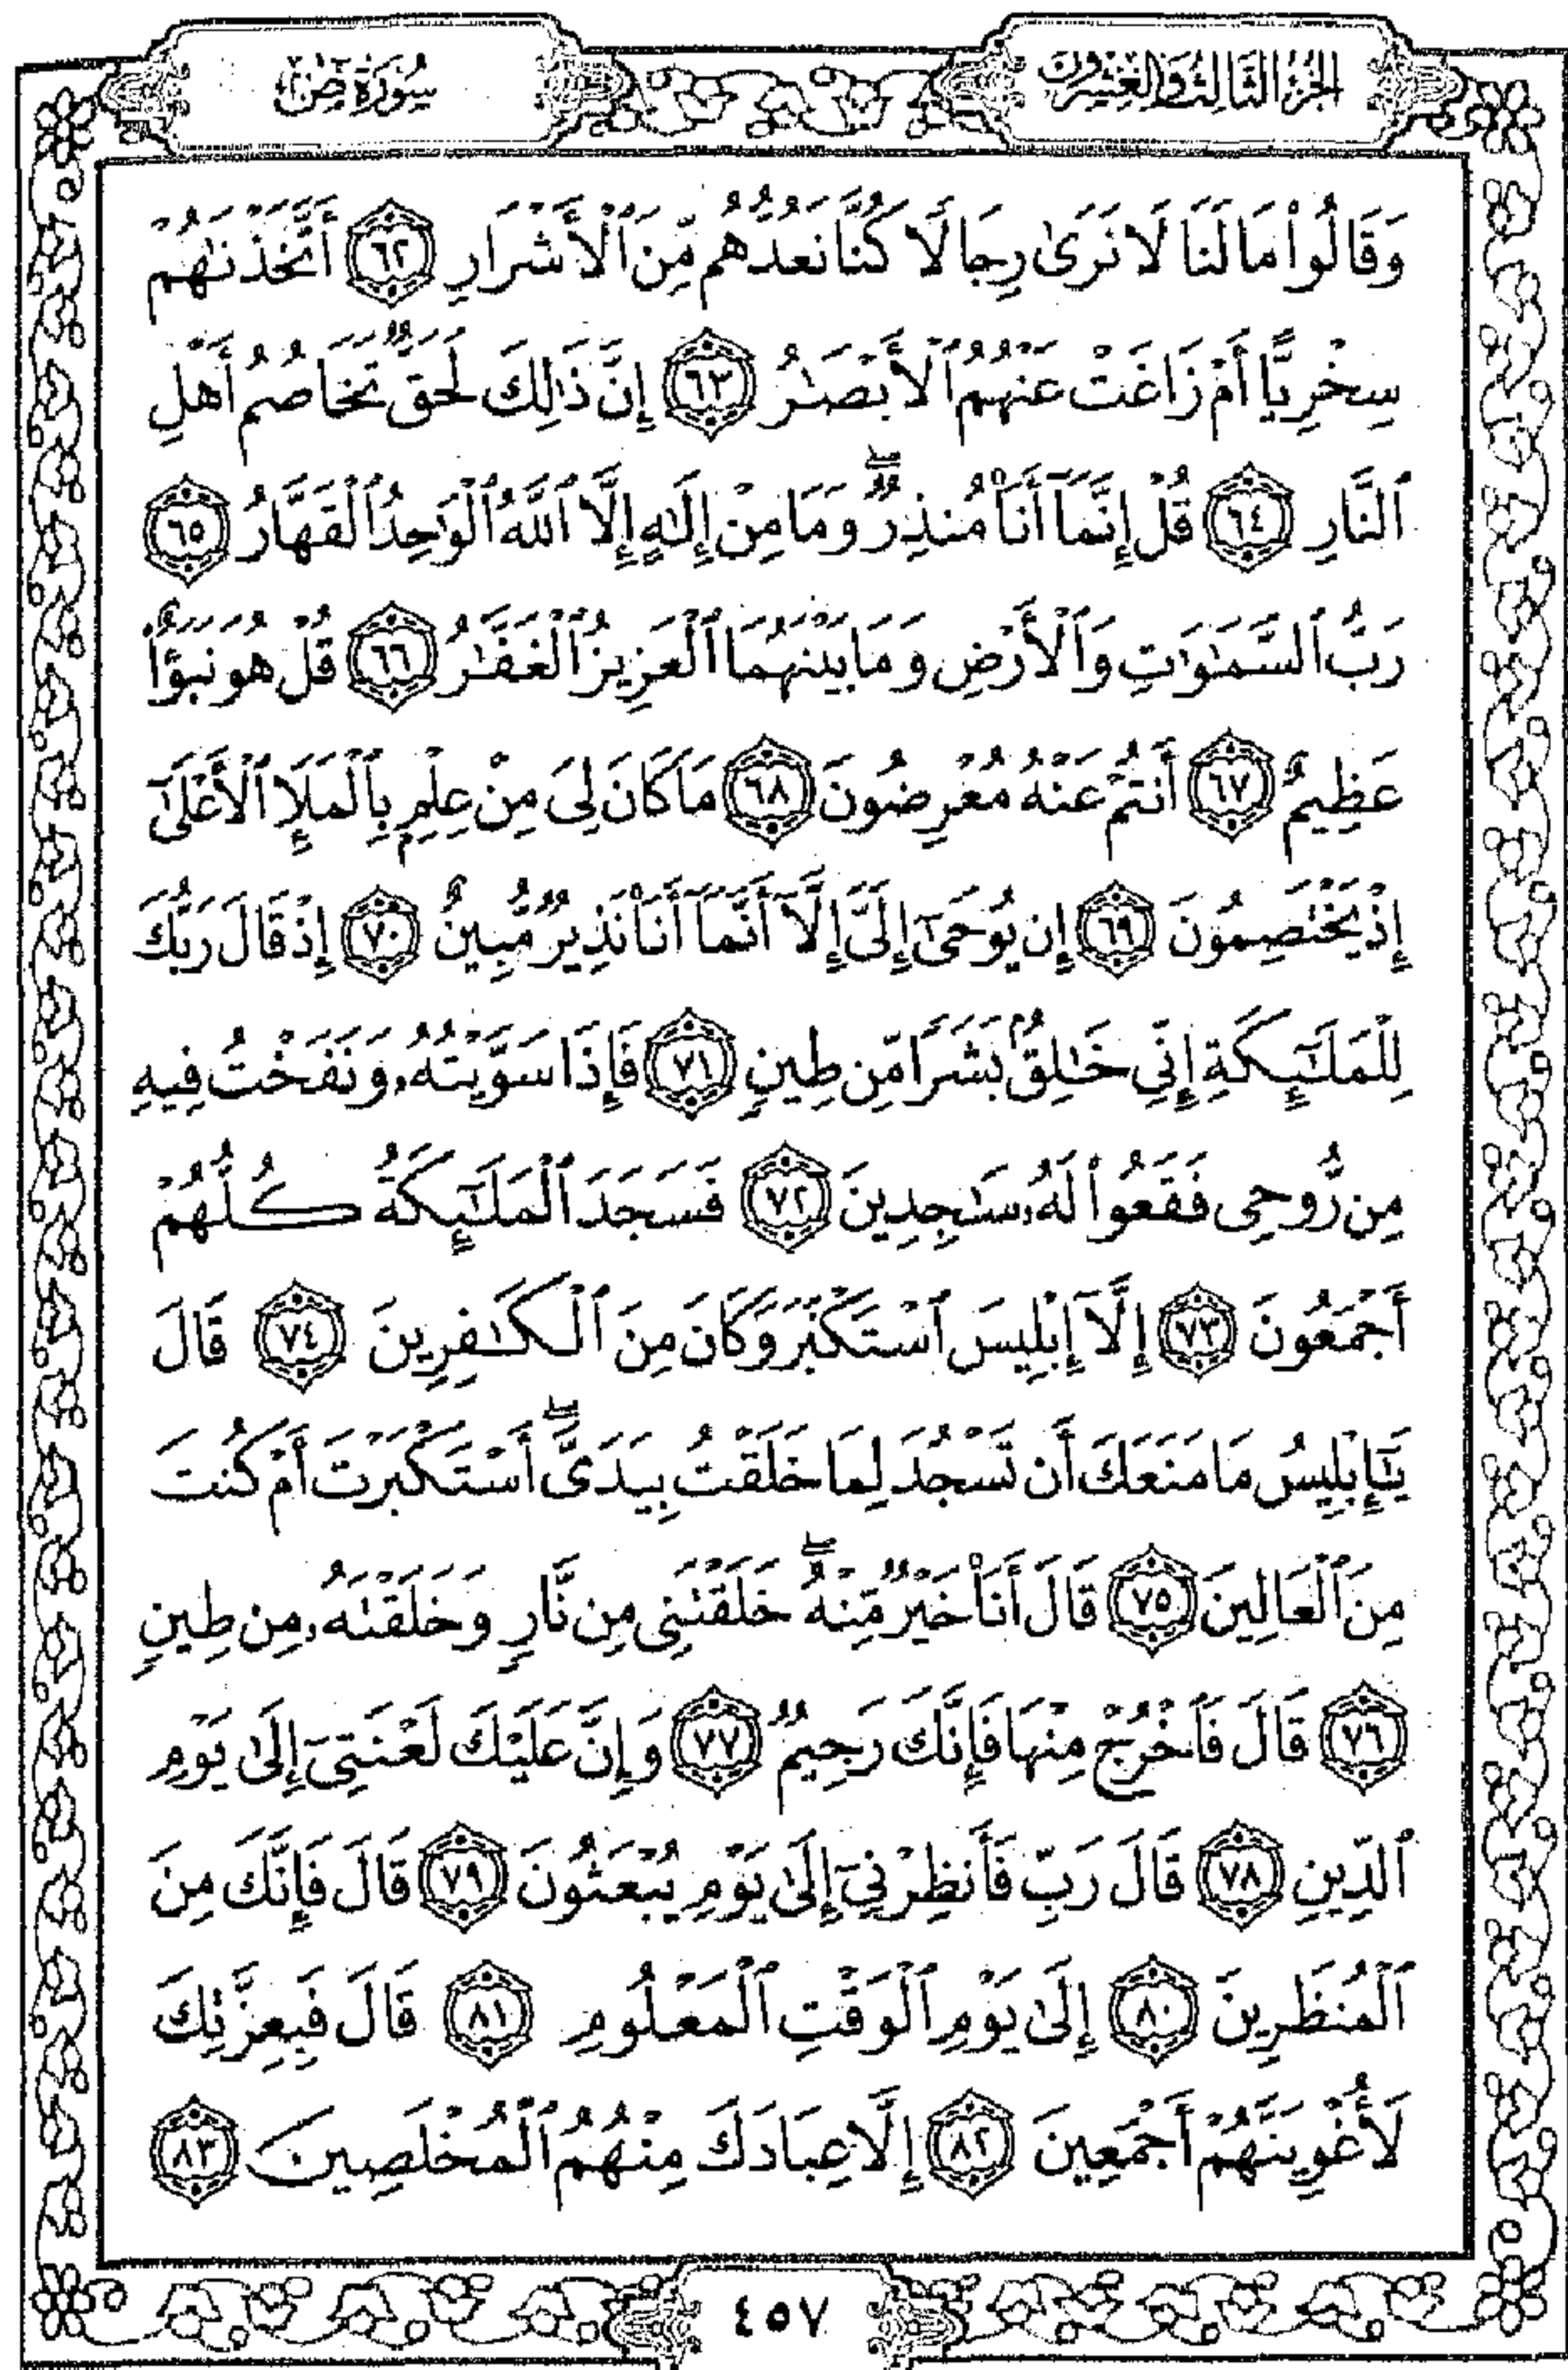 الجزء الثالث والعشرون
سورة ص
وَقَالُوا۟ مَا لَنَا لَا نَرَىٰ رِجَالًا كُنَّا نَعُدُّهُم مِّنَ ٱلْأَشْرَارِ ﴿٦٢﴾ أَتَّخَذْنَٰهُمْ
سِخْرِيًّا أَمْ زَاغَتْ عَنْهُمُ ٱلْأَبْصَٰرُ ﴿٦٣﴾ إِنَّ ذَٰلِكَ لَحَقٌّ تَخَاصُمُ أَهْلِ
ٱلنَّارِ ﴿٦٤﴾ قُلْ إِنَّمَآ أَنَا۠ مُنذِرٌ ۖ وَمَا مِنْ إِلَٰهٍ إِلَّا ٱللَّهُ ٱلْوَٰحِدُ ٱلْقَهَّارُ ﴿٦٥﴾
رَبُّ ٱلسَّمَٰوَٰتِ وَٱلْأَرْضِ وَمَا بَيْنَهُمَا ٱلْعَزِيزُ ٱلْغَفَّٰرُ ﴿٦٦﴾ قُلْ هُوَ نَبَؤٌا۟
عَظِيمٌ ﴿٦٧﴾ أَنتُمْ عَنْهُ مُعْرِضُونَ ﴿٦٨﴾ مَا كَانَ لِىَ مِنْ عِلْمٍۭ بِٱلْمَلَإِ ٱلْأَعْلَىٰٓ
إِذْ يَخْتَصِمُونَ ﴿٦٩﴾ إِن يُوحَىٰٓ إِلَىَّ إِلَّآ أَنَّمَآ أَنَا۠ نَذِيرٌ مُّبِينٌ ﴿٧٠﴾ إِذْ قَالَ رَبُّكَ
لِلْمَلَٰٓئِكَةِ إِنِّى خَٰلِقٌۢ بَشَرًا مِّن طِينٍ ﴿٧١﴾ فَإِذَا سَوَّيْتُهُۥ وَنَفَخْتُ فِيهِ
مِن رُّوحِى فَقَعُوا۟ لَهُۥ سَٰجِدِينَ ﴿٧٢﴾ فَسَجَدَ ٱلْمَلَٰٓئِكَةُ كُلُّهُمْ
أَجْمَعُونَ ﴿٧٣﴾ إِلَّآ إِبْلِيسَ ٱسْتَكْبَرَ وَكَانَ مِنَ ٱلْكَٰفِرِينَ ﴿٧٤﴾ قَالَ
يَٰٓإِبْلِيسُ مَا مَنَعَكَ أَن تَسْجُدَ لِمَا خَلَقْتُ بِيَدَىَّ ۖ أَسْتَكْبَرْتَ أَمْ كُنتَ
مِنَ ٱلْعَالِينَ ﴿٧٥﴾ قَالَ أَنَا۠ خَيْرٌ مِّنْهُ ۖ خَلَقْتَنِى مِن نَّارٍ وَخَلَقْتَهُۥ مِن طِينٍ
﴿٧٦﴾ قَالَ فَٱخْرُجْ مِنْهَا فَإِنَّكَ رَجِيمٌ ﴿٧٧﴾ وَإِنَّ عَلَيْكَ لَعْنَتِىٓ إِلَىٰ يَوْمِ
ٱلدِّينِ ﴿٧٨﴾ قَالَ رَبِّ فَأَنظِرْنِىٓ إِلَىٰ يَوْمِ يُبْعَثُونَ ﴿٧٩﴾ قَالَ فَإِنَّكَ مِنَ
ٱلْمُنظَرِينَ ﴿٨٠﴾ إِلَىٰ يَوْمِ ٱلْوَقْتِ ٱلْمَعْلُومِ ﴿٨١﴾ قَالَ فَبِعِزَّتِكَ
لَأُغْوِيَنَّهُمْ أَجْمَعِينَ ﴿٨٢﴾ إِلَّا عِبَادَكَ مِنْهُمُ ٱلْمُخْلَصِينَ ﴿٨٣﴾
٤٥٧